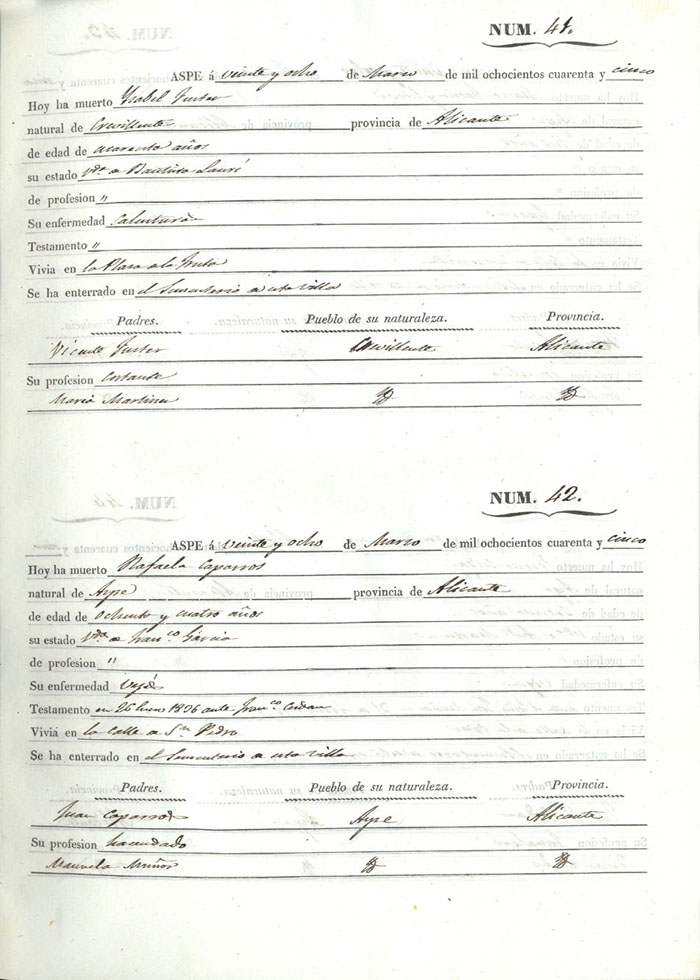 NUM. 41.
ASPE á veinte y ocho de Marzo de mil ochocientos cuarenta y cinco
Hoy ha muerto Ysabel Fuster
natural de Crevillente provincia de Alicante
de edad de cuarenta años
su estado Vda. de Bautista
de profesion "
Su enfermedad Calentura
Testamento "
Vivia en la Plaza de la Fruta
Se ha enterrado en el Sementerio de esta Villa
Padres. Pueblo de su naturaleza. Provincia.
Vicente Fuster Crevillente Alicante
Su profesion
Maria Martinez
NUM. 42.
ASPE á veinte y ocho de Marzo de mil ochocientos cuarenta y cinco
Hoy ha muerto Rafaela Caparros
natural de Aspe provincia de Alicante
de edad de ochenta y cuatro años
su estado Vda. de Franco. Garcia
de profesion "
Su enfermedad Vejés
Testamento en 26 Enero 1836 ante Franco. Cerdan
Vivia en la Calle de Sn. Pedro
Se ha enterrado en el Sementerio de esta Villa
Padres. Pueblo de su naturaleza. Provincia.
Juan Caparros Aspe Alicante
Su profesion hacendado
Manuela Muñoz